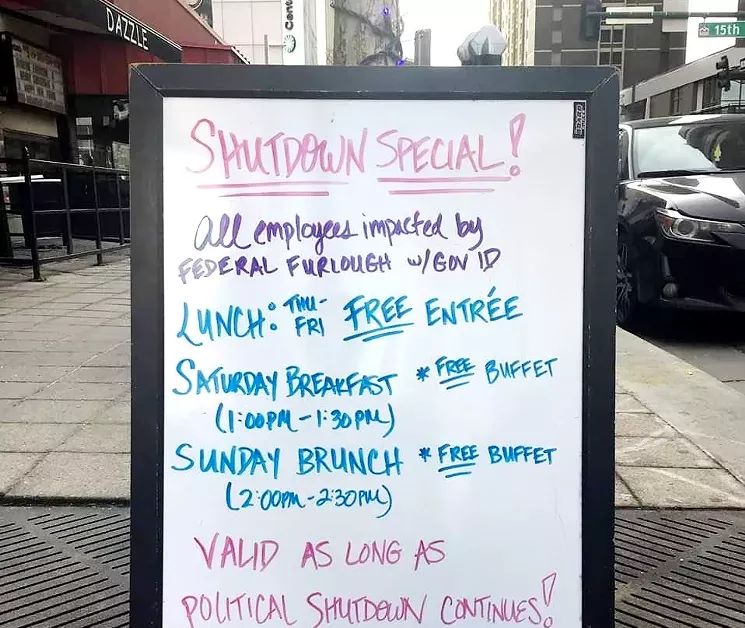 DAZZLE
Cent
15th
SHUTDOWN SPECIAL!
All employees impacted by
FEDERAL FURLOUGH w/GOV ID
LUNCH: THU-FRI FREE ENTRÉE
SATURDAY BREAKFAST * FREE BUFFET
(1:00PM - 1:30PM)
SUNDAY BRUNCH * FREE BUFFET
(2:00PM - 2:30PM)
VALID AS LONG AS
POLITICAL SHUTDOWN CONTINUES!